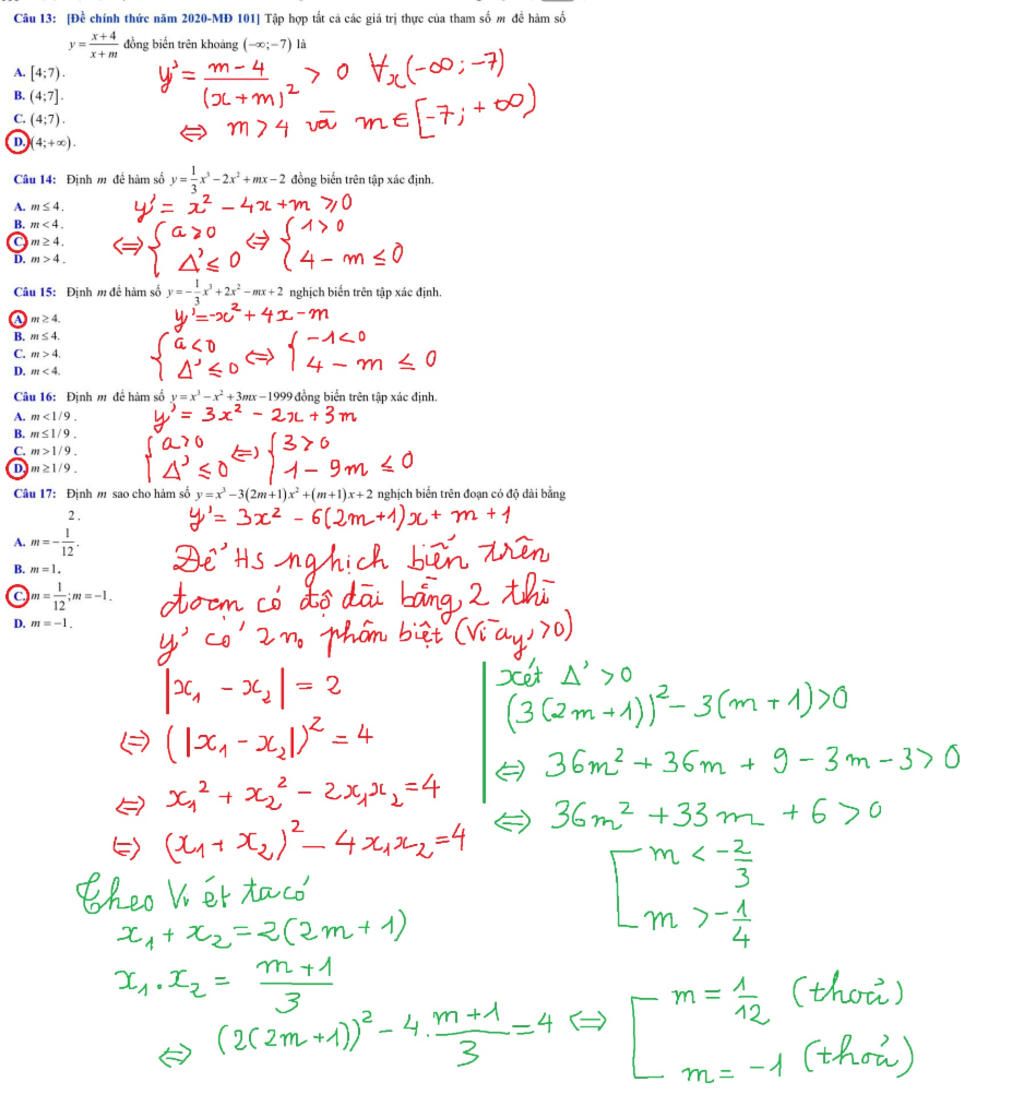 Câu 13: [Đề chính thức năm 2020-MĐ 101] Tập hợp tất cả các giá trị thực của tham số m để hàm số
y = (x+4)/(x+m) đồng biến trên khoảng (−∞;−7) là
y' = (m−4)/(x+m)² > 0 ∀x(−∞;−7)
⇔ m > 4 và m ∈ [−7; +∞)
A. [4;7).
B. (4;7].
C. (4;7).
D. (4;+∞).
Câu 14: Định m để hàm số y = 1/3 x³ − 2x² + mx − 2 đồng biến trên tập xác định.
y' = x² − 4x + m ⩾ 0
⇔ { a > 0 ⇔ { 1 > 0
Δ' ≤ 0 4 − m ≤ 0
A. m ≤ 4.
B. m < 4.
C. m ≥ 4.
D. m > 4.
Câu 15: Định m để hàm số y = −1/3 x³ + 2x² − mx + 2 nghịch biến trên tập xác định.
y' = −x² + 4x − m
{ a < 0 ⇔ { −1 < 0
Δ' ≤ 0 4 − m ≤ 0
A. m ≥ 4.
B. m ≤ 4.
C. m > 4.
D. m < 4.
Câu 16: Định m để hàm số y = x³ − x² + 3mx − 1999 đồng biến trên tập xác định.
y' = 3x² − 2x + 3m
{ a > 0 ⇔ { 3 > 0
Δ' ≤ 0 1 − 9m ≤ 0
A. m < 1/9.
B. m ≤ 1/9.
C. m > 1/9.
D. m ≥ 1/9.
Câu 17: Định m sao cho hàm số y = x³ − 3(2m+1)x² + (m+1)x + 2 nghịch biến trên đoạn có độ dài bằng
2.
y' = 3x² − 6(2m+1)x + m + 1
A. m = −1/12.
B. m = 1.
C. m = 1/12; m = −1.
D. m = −1.
Để HS nghịch biến trên
đoạn có độ dài bằng 2 thì
y' có 2 n₀ phân biệt (Vì a y' > 0)
|x₁ − x₂| = 2
⇔ (|x₁ − x₂|)² = 4
⇔ x₁² + x₂² − 2x₁x₂ = 4
⇔ (x₁ + x₂)² − 4x₁x₂ = 4
xét Δ' > 0
(3(2m+1))² − 3(m+1) > 0
⇔ 36m² + 36m + 9 − 3m − 3 > 0
⇔ 36m² + 33m + 6 > 0
[ m < −2/3
m > −1/4
Theo Vi ét ta có
x₁ + x₂ = 2(2m+1)
x₁.x₂ = (m+1)/3
⇔ (2(2m+1))² − 4.(m+1)/3 = 4 ⇔ [ m = 1/12 (thoả)
m = −1 (thoả)